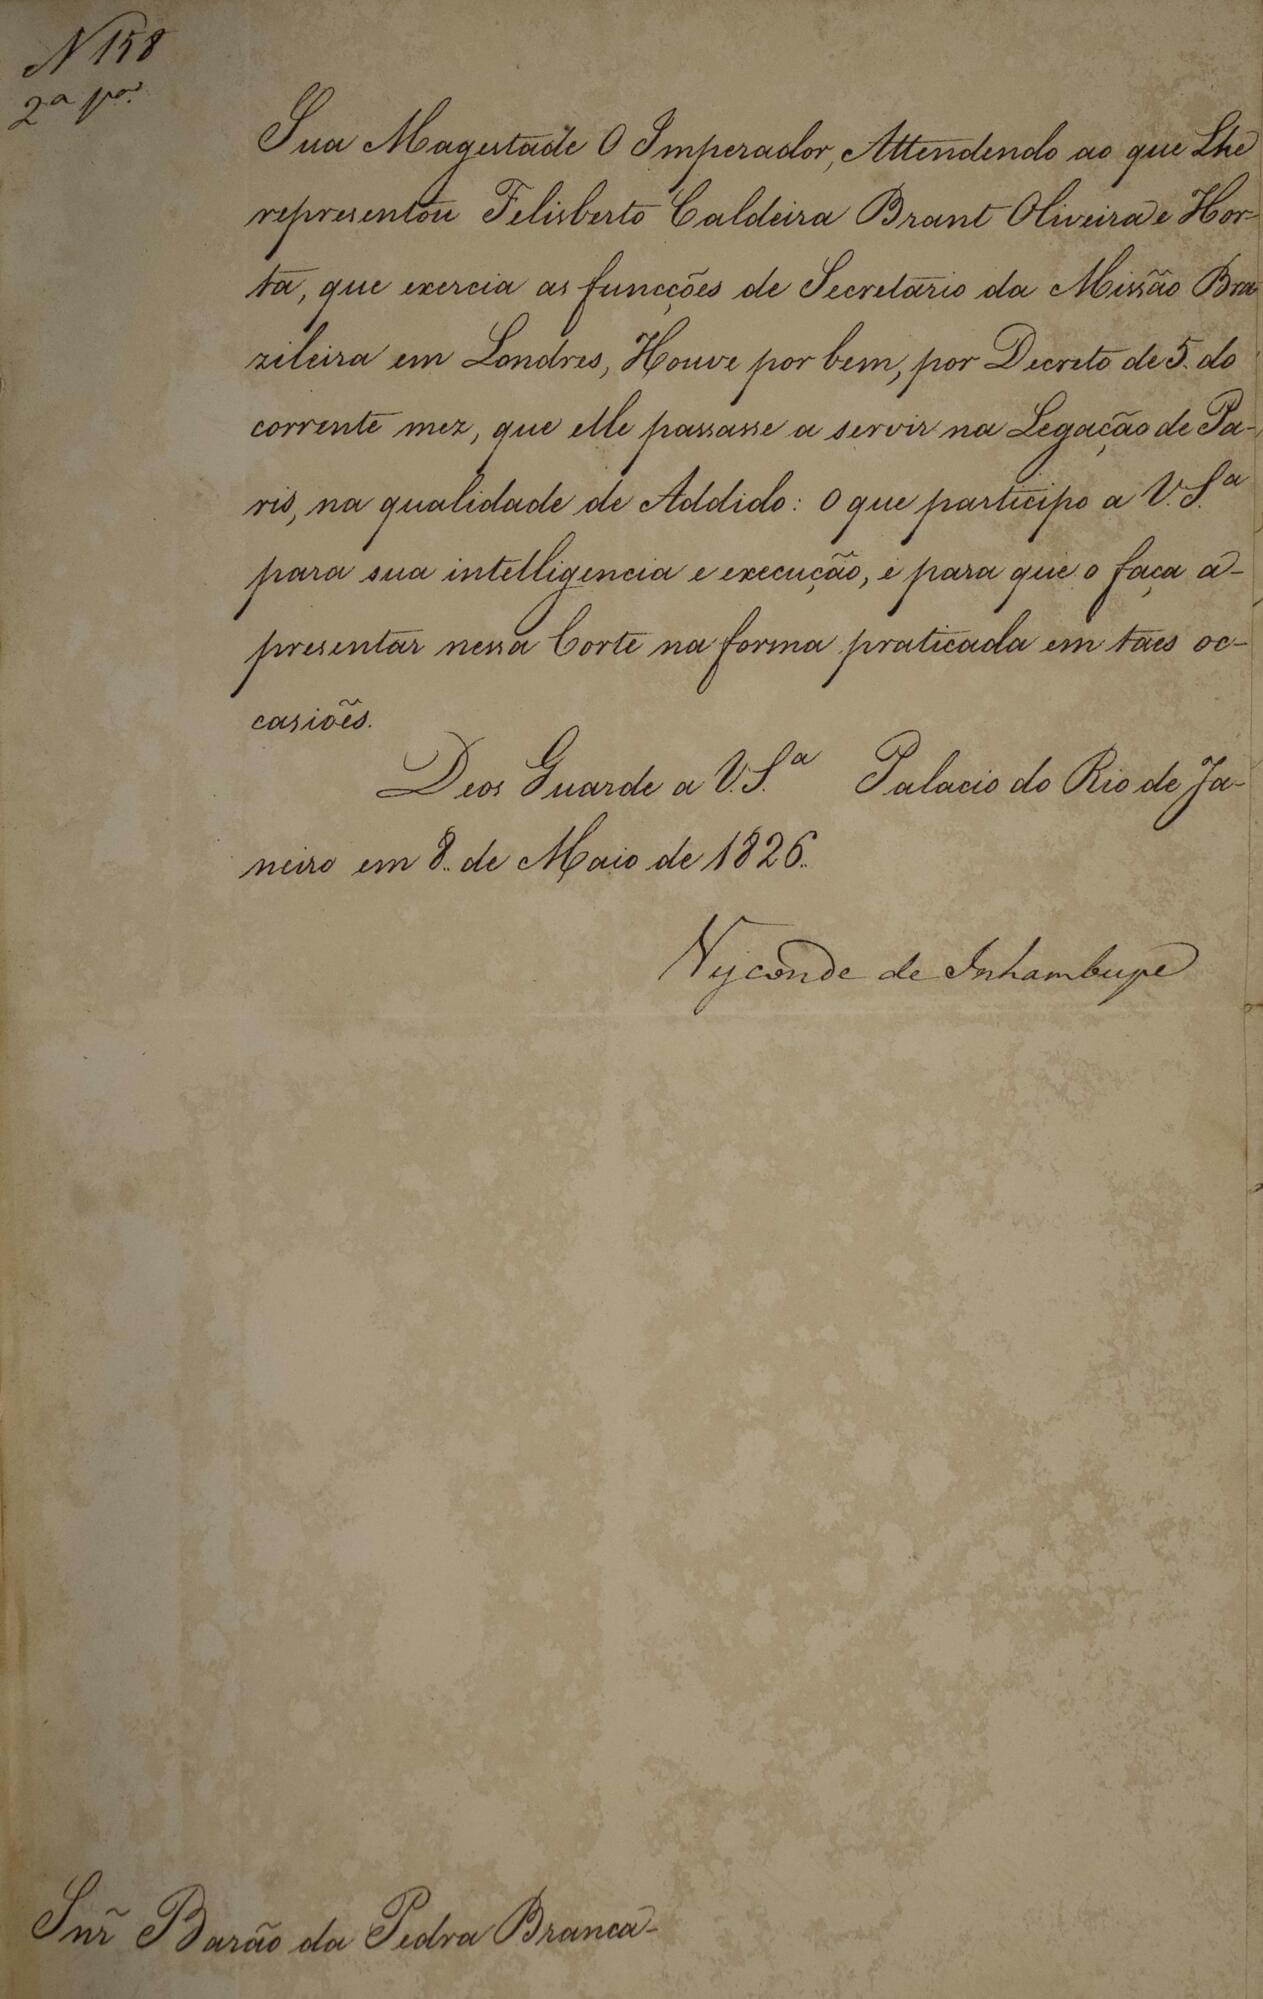 N 158
2ª
Sua Magestade O Imperador, Attendendo ao que Lhe
representou Felisberto Caldeira Brant Oliveira e Hor-
ta, que exercia as funcções de Secretario da Missão Bra
zileira em Londres, Houve por bem, por Decreto de 5. do
corrente mez, que elle passasse a servir na Legação de Pa-
ris, na qualidade de Addido: o que participo a V. S.ª
para sua intelligencia e execução, e para que o faça a-
presentar nessa Corte na forma praticada em taes oc-
casiões.
Deos Guarde a V. S.ª Palacio do Rio de Ja-
neiro em 8.. de Maio de 1826..
Visconde de Inhambupe
Snr̃ Barão da Pedra Branca-